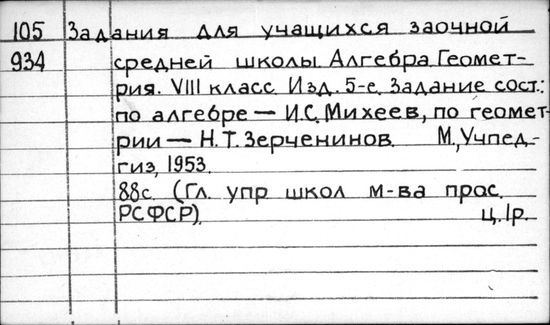 105 Задания для учащихся заочной
934 средней школы. Алгебра. Геомет-
рия. VIII класс. Изд. 5-е. Задание сост.:
по алгебре — И.С. Михеев, по геомет-
рии — Н.Т. Зерченинов. М., Учпед-
гиз, 1953.
88с. (Гл. упр школ м-ва прос.
РСФСР). ц. 1р.